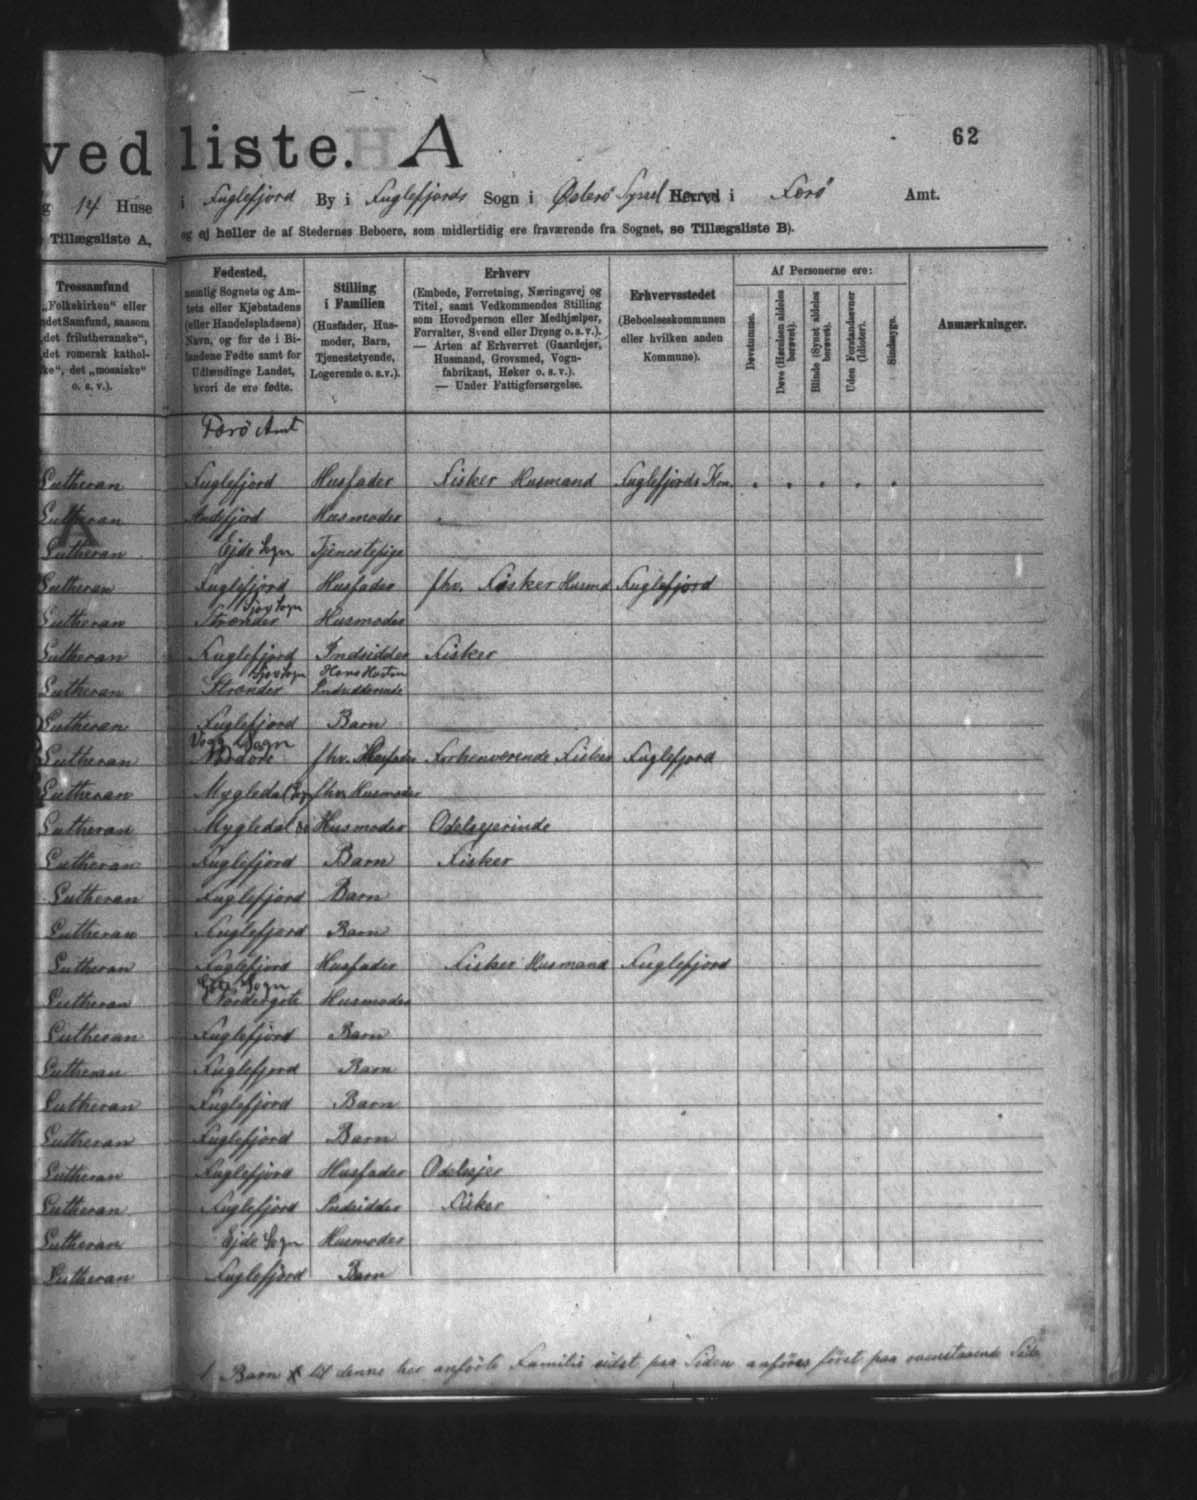 ved liste. A
62
g 14 Huse i Fuglefjord By i Fuglefjords Sogn i Østerø Syssel Herred i Færø Amt.
Tillægsliste A, og ej heller de af Stedernes Beboere, som midlertidig ere fraværende fra Sognet, se Tillægsliste B).
Trossamfund
„Folkekirken“ eller
ndet Samfund, saasom
„det frilutheranske“,
„det romersk kathol-
ke“, det „mosaiske“
o. s. v.).
Fødested,
nemlig Sognets og Am-
tets eller Kjøbstadens
(eller Handelspladsens)
Navn, og for de i Bi-
landene Fødte samt for
Udlændinge Landet,
hvori de ere fødte.
Stilling
i Familien
(Husfader, Hus-
moder, Barn,
Tjenestetyende,
Logerende o. s. v.).
Erhverv
(Embede, Forretning, Næringsvej og
Titel, samt Vedkommendes Stilling
som Hovedperson eller Medhjælper,
Forvalter, Svend eller Dreng o. s. v.).
— Arten af Erhvervet (Gaardejer,
Husmand, Grovsmed, Vogn-
fabrikant, Høker o. s. v.).
— Under Fattigforsørgelse.
Erhvervsstedet
(Beboelseskommunen
eller hvilken anden
Kommune).
Af Personerne ere:
Døvstumme.
Døve (Hørelsen aldeles
berøvet).
Blinde (Synet aldeles
berøvet).
Uden Forstandsevner
(Idioter).
Sindssyge.
Anmærkninger.
Færø Amt
Lutheran Fuglefjord Husfader Fisker Husmand Fuglefjords Km.
Lutheran Andefjord Husmoder
Lutheran Ejde Sogn Tjenestepige
Lutheran Fuglefjord Husfader fhv. Fisker Husmd Fuglefjord
Sjov Sogn
Lutheran Strænder Husmoder
Lutheran Fuglefjord Indsidder Fisker
Sjov Sogn Hans Hustru
Lutheran Strænder Indsidderende
Lutheran Fuglefjord Barn
Sogn
Lutheran fhv. Husfader Forhenværende Fisker Fuglefjord
Lutheran Mygledal Sogn fhv Husmoder
Lutheran Mygledal Husmoder Odelsejerinde
Lutheran Fuglefjord Barn Fisker
Lutheran Fuglefjord Barn
Lutheran Fuglefjord Barn
Lutheran Fuglefjord Husfader Fisker Husmand Fuglefjord
Sogn
Lutheran Nordergøte Husmoder
Lutheran Fuglefjord Barn
Lutheran Fuglefjord Barn
Lutheran Fuglefjord Barn
Lutheran Fuglefjord Barn
Lutheran Fuglefjord Husfader Odelsejer
Lutheran Fuglefjord Indsidder Fisker
Lutheran Ejde Sogn Husmoder
Lutheran Fuglefjord Barn
1 Barn til denne her anførte Familie sidst paa Siden anføres først paa ovenstaaende Side